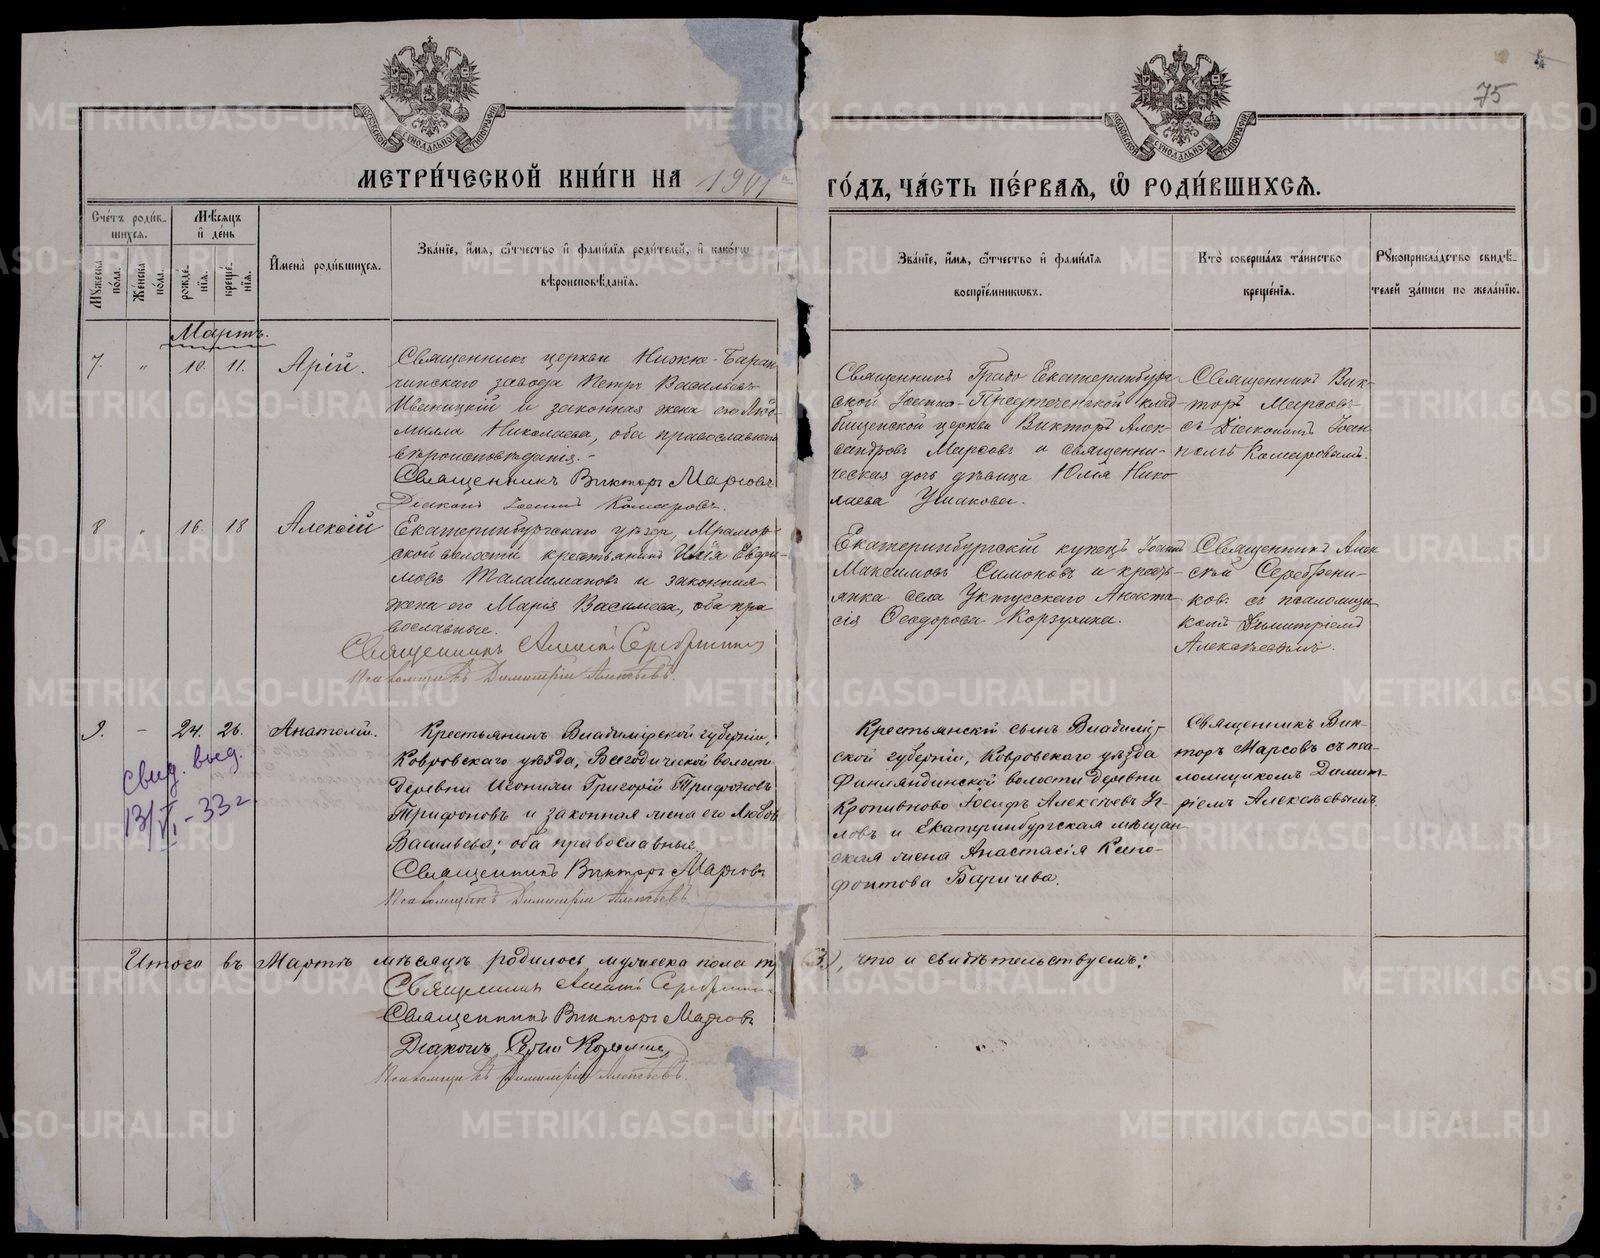 75
МЕТРИ́ЧЕСКОЙ КНИ́ГИ НА 1901 ГО́ДЪ, ЧА́СТЬ ПЕ́РВАѦ, Ѡ҆ РОДИ́ВШИХСѦ.
Счётъ роди́в-
шихсѧ.
Мѣ́сѧцъ
и҆ де́нь
Мꙋ́жеска по́ла.
Же́нска по́ла.
рожде́-
нїѧ.
креще́-
нїѧ.
И҆мена̀ роди́вшихсѧ.
Зва́нїе, и҆́мѧ, ѻ҆́тчество и҆ фами́лїѧ роди́телей, и҆ како́гѡ
вѣроисповѣ́данїѧ.
Зва́нїе, и҆́мѧ, ѻ҆́тчество и҆ фами́лїѧ
воспрїе́мникѡвъ.
Кто̀ соверша́лъ та́инство
креще́нїѧ.
Рꙋкоприкла́дство свидѣ́-
телей за́писи по жела́нїю.
Мартъ.
7. " 10. 11. Арій.
Священникъ церкви Нижне-Баран-
чинскаго завода Петръ Васильевъ
Иваницкій и законная жена его Люд-
милла Николаева, оба православнаго
вѣроисповѣданія.-
Священникъ Викторъ Марсовъ
Діаконъ Іоаннъ Комаровъ.
Священникъ Градо Екатеринбург-
ской Іоанно-Предтеченской клад-
бищенской церкви Викторъ Алек-
сандровъ Марсовъ и священни-
ческая дочь дѣвица Юлія Нико-
лаева Ушакова.
Священникъ Вик-
торъ Марсовъ
съ Діакономъ Іоан-
номъ Комаровымъ.
8 " 16. 18 Алексій
Екатеринбургскаго уѣзда, Мрамор-
ской волости крестьянинъ Илія Евфи-
мовъ Талашмановъ и законная
жена его Марія Васильева, оба пра-
вославные.
Священникъ Алексій Серебрениковъ
Псаломщикъ Димитрій Алексѣевъ.
Екатеринбургскій купецъ Іоаннъ
Максимовъ Симоновъ и кресть-
янка села Уктусскаго Анаста-
сія Ѳеодорова Корзухина.
Священникъ Алек-
сѣй Серебрени-
ковъ съ псаломщи-
комъ Димитріемъ
Алексѣевымъ.
9. - 24. 26. Анатолій.
свид. выд.
13/VI-33 г.
Крестьянинъ Владимірской губерніи,
Ковровскаго уѣзда, Всегодической волости
деревни Игонихи Григорій Трифоновъ
Трифоновъ и законная жена его Любовь
Васильева; оба православные.
Священникъ Викторъ Марсовъ
Псаломщикъ Димитрій Алексѣевъ
Крестьянскій сынъ Владимір-
ской губерніи, Ковровскаго уѣзда
Финляндинской волости деревни
Крапивново Іосифъ Алексѣевъ
и Екатеринбургская мѣщан-
ская жена Анастасія Ксено-
фонтова
Священникъ Вик-
торъ Марсовъ съ пса-
ломщикомъ Димит-
ріемъ Алексѣевымъ.
Итого въ Мартѣ мѣсяцѣ родилось мужеска пола три (3), что и свидѣтельствуемъ:
Священникъ Алексій Серебрениковъ
Священникъ Викторъ Марсовъ
Діаконъ
Псаломщикъ Димитрій Алексѣевъ.
METRIKI.GASO-URAL.RU